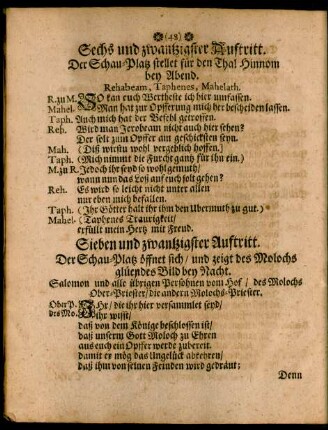 (48)
Sechs und zwantzigster Aufftritt.
Der Schau-Platz stellet für den Thal Hinnom
bey Abend.
Rehabeam, Taphenes, Mahelath.
R. zu M. SO kan euch Wertheste ich hier umfassen.
Mahel. Man hat zur Opfferung mich her bescheiden lassen.
Taph. Auch mich hat der Befehl getroffen.
Reh. Wird man Jerobeam nicht auch hier sehen?
Der solt zum Opffer am geschicksten seyn.
Mah. (Diß wirstu wohl vergeblich hoffen.)
Taph. (Mich nimmt die Furcht gantz für ihn ein.)
M. zu R. Jedoch ihr seyd so wohlgemuth/
wann nun das Loß auf euch solt gehen?
Reh. Es wird so leicht nicht unter allen
nur eben mich befallen.
Taph. (Ihr Götter halt ihr ihm den Ubermuth zu gut.)
Mahel. (Taphenes Traurigkeit/
erfüllt mein Hertz mit Freud.
Sieben und zwantzigster Aufftritt.
Der Schau-Platz öffnet sich/ und zeigt des Molochs
glüendes Bild bey Nacht.
Salomon und alle übrigen Persohnen vom Hof/ des Molochs
Ober-Priester/ die andern Molochs-Priester.
Ober P. des Mo. IHr/ die ihr hier versammlet seyd/
ihr wisst/
daß von dem Könige beschlossen ist/
daß unserm Gott Moloch zu Ehren
aus euch ein Opffer werde zubereit.
damit er mög das Ungelück abkehren/
daß ihm von seinen Feinden wird gedräut;
Denn